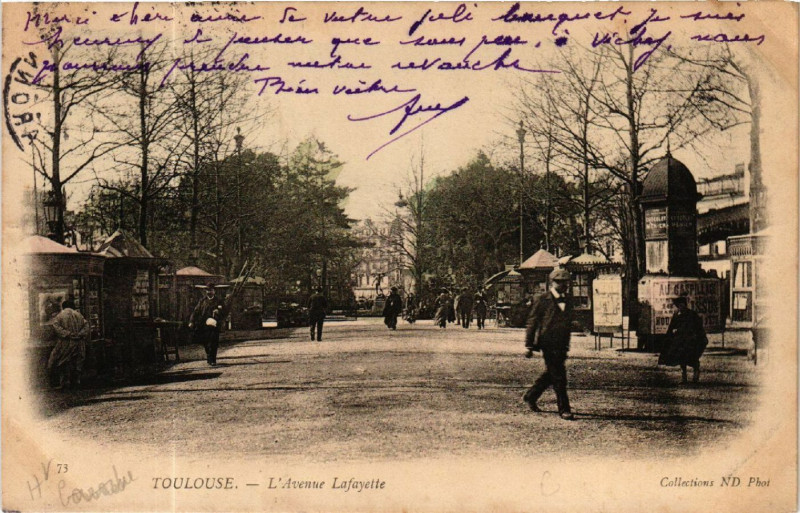 Merci chère amie de votre joli bouquet je suis
heureux de penser que sous peu, à Vichy, nous
pourrons prendre notre revanche
Bien vôtre
73
TOULOUSE. — L'Avenue Lafayette
Collections ND Phot